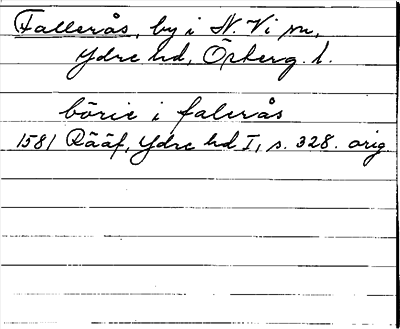 Fallerås, by i N. Vi sn,
Ydre hd, Östergt. l.
börie i falerås
1581 Rääf, Ydre hd I, s. 328. orig.